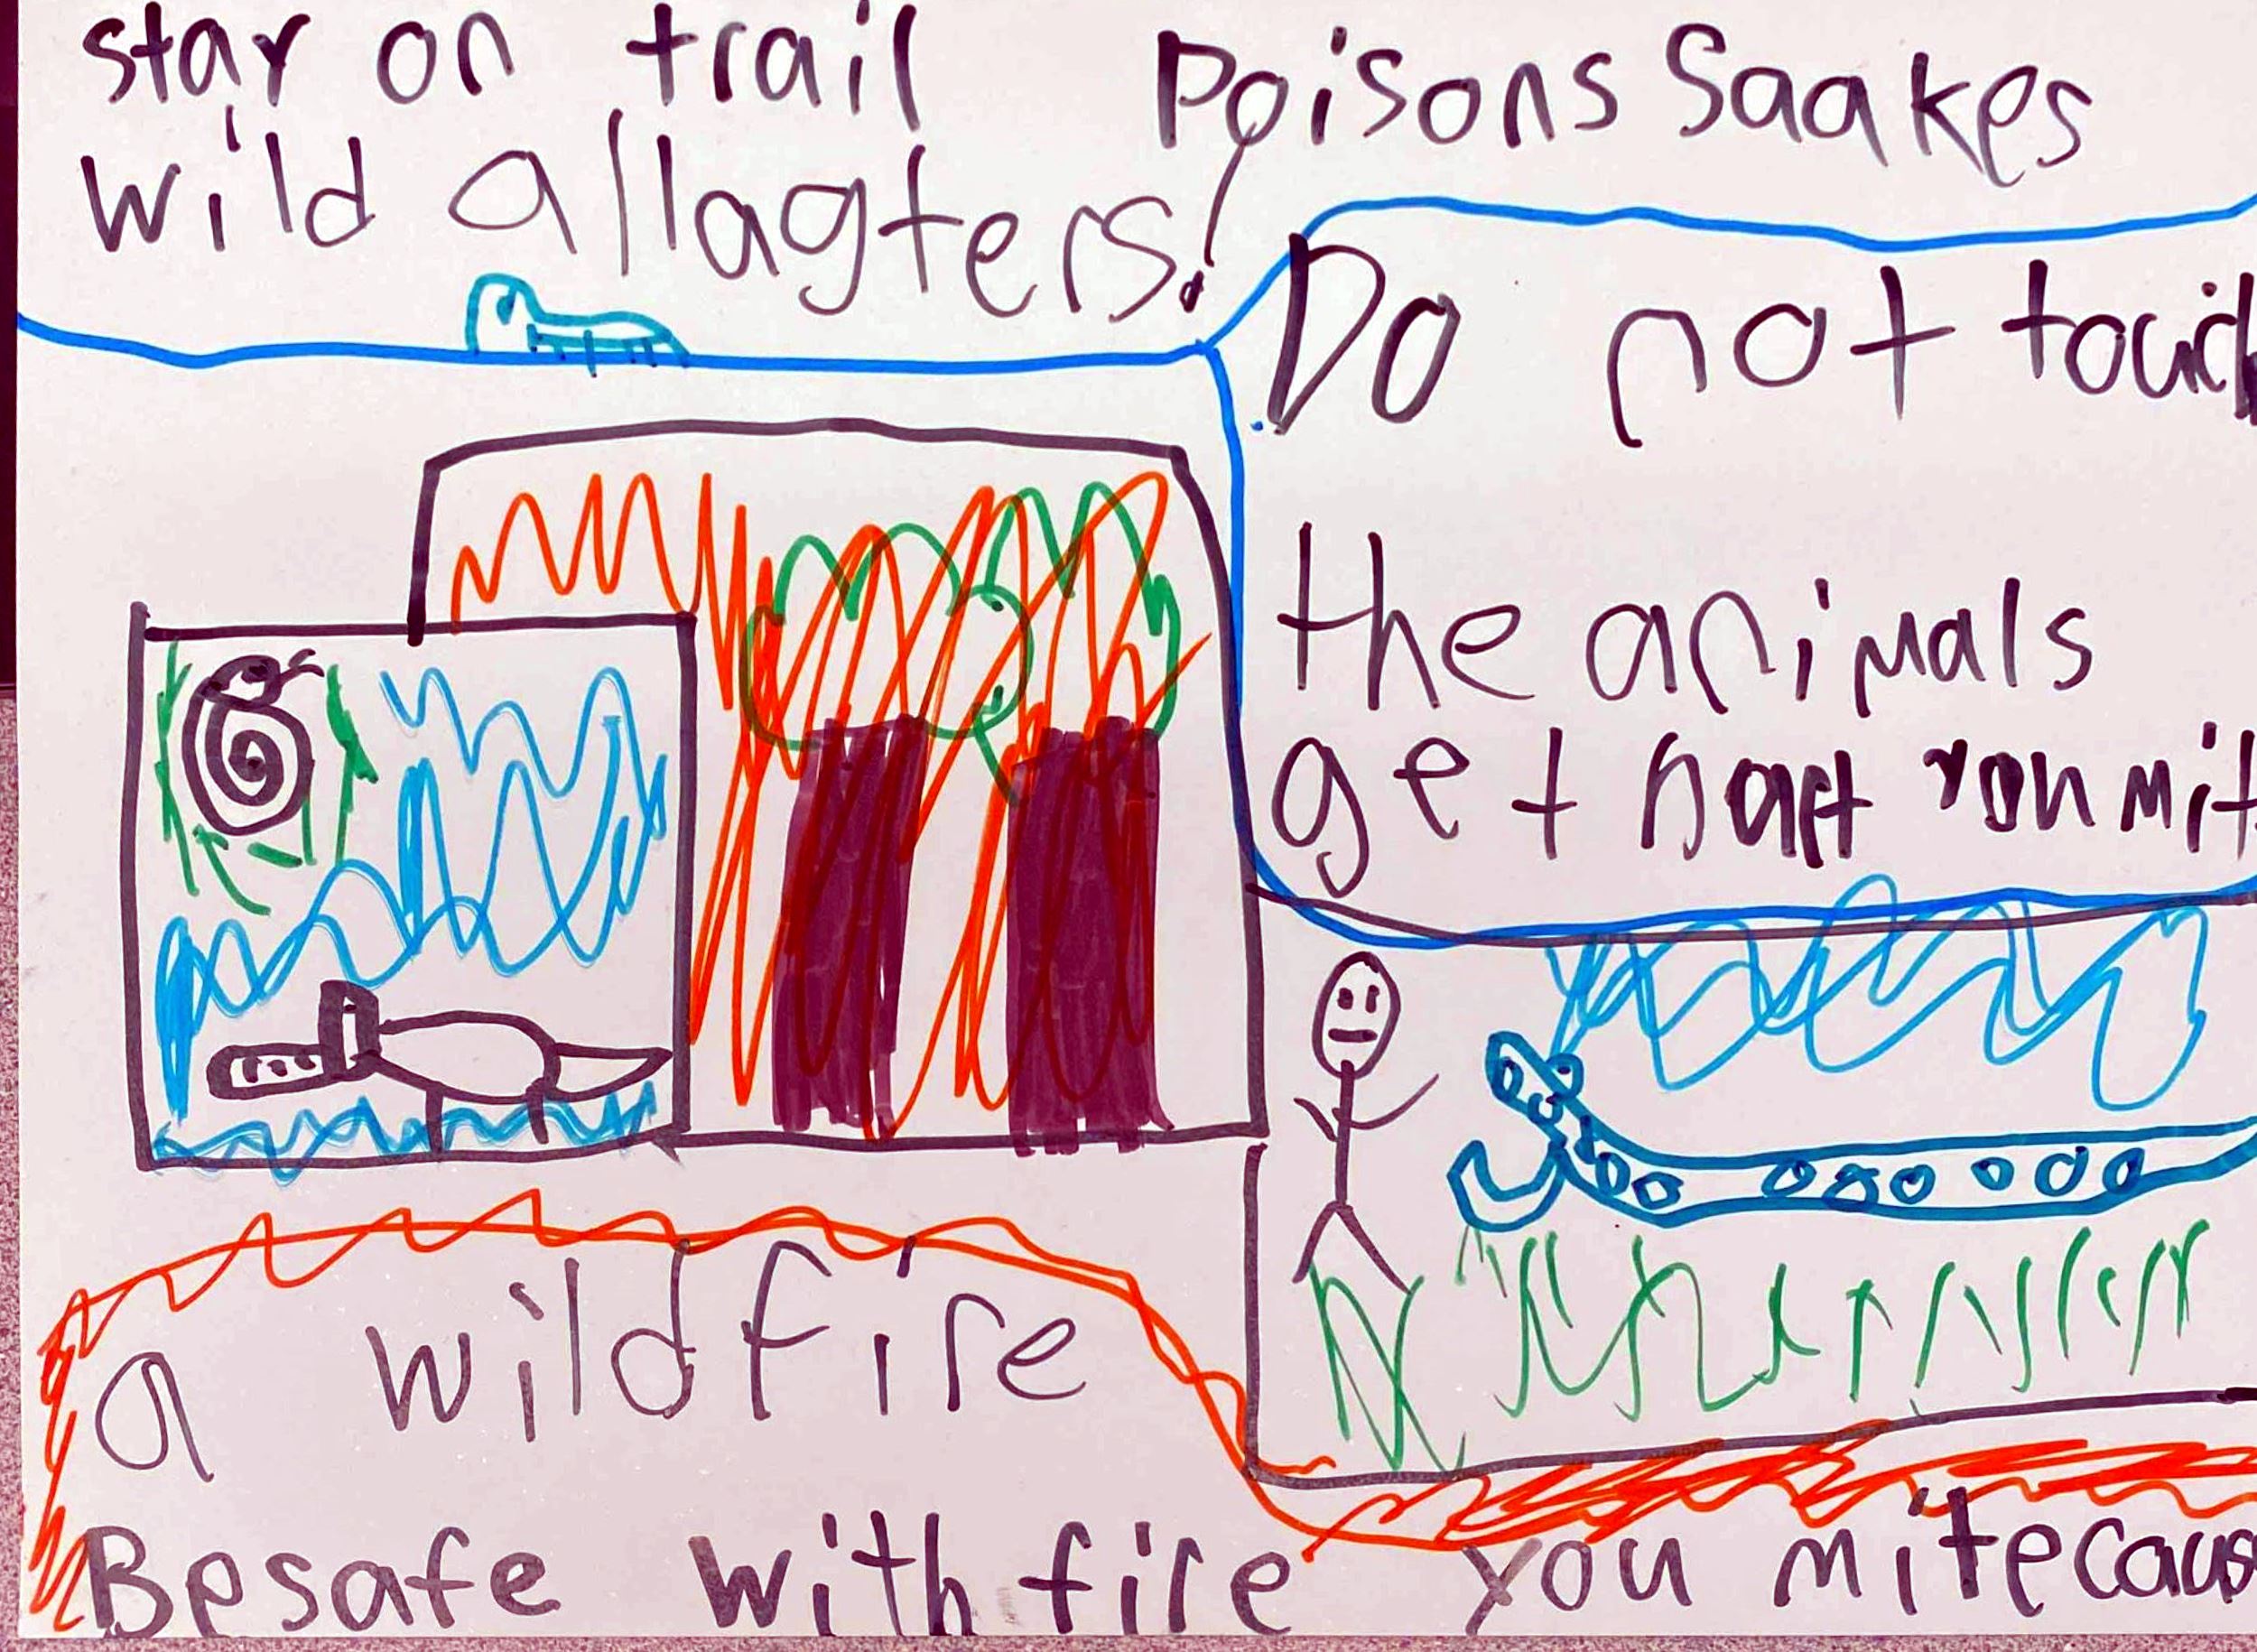 star on trail Poisons Saakes
wild allagters!
Do not touch
the animals
get hart you mit
a wildfire
Be safe with fire you mite caus